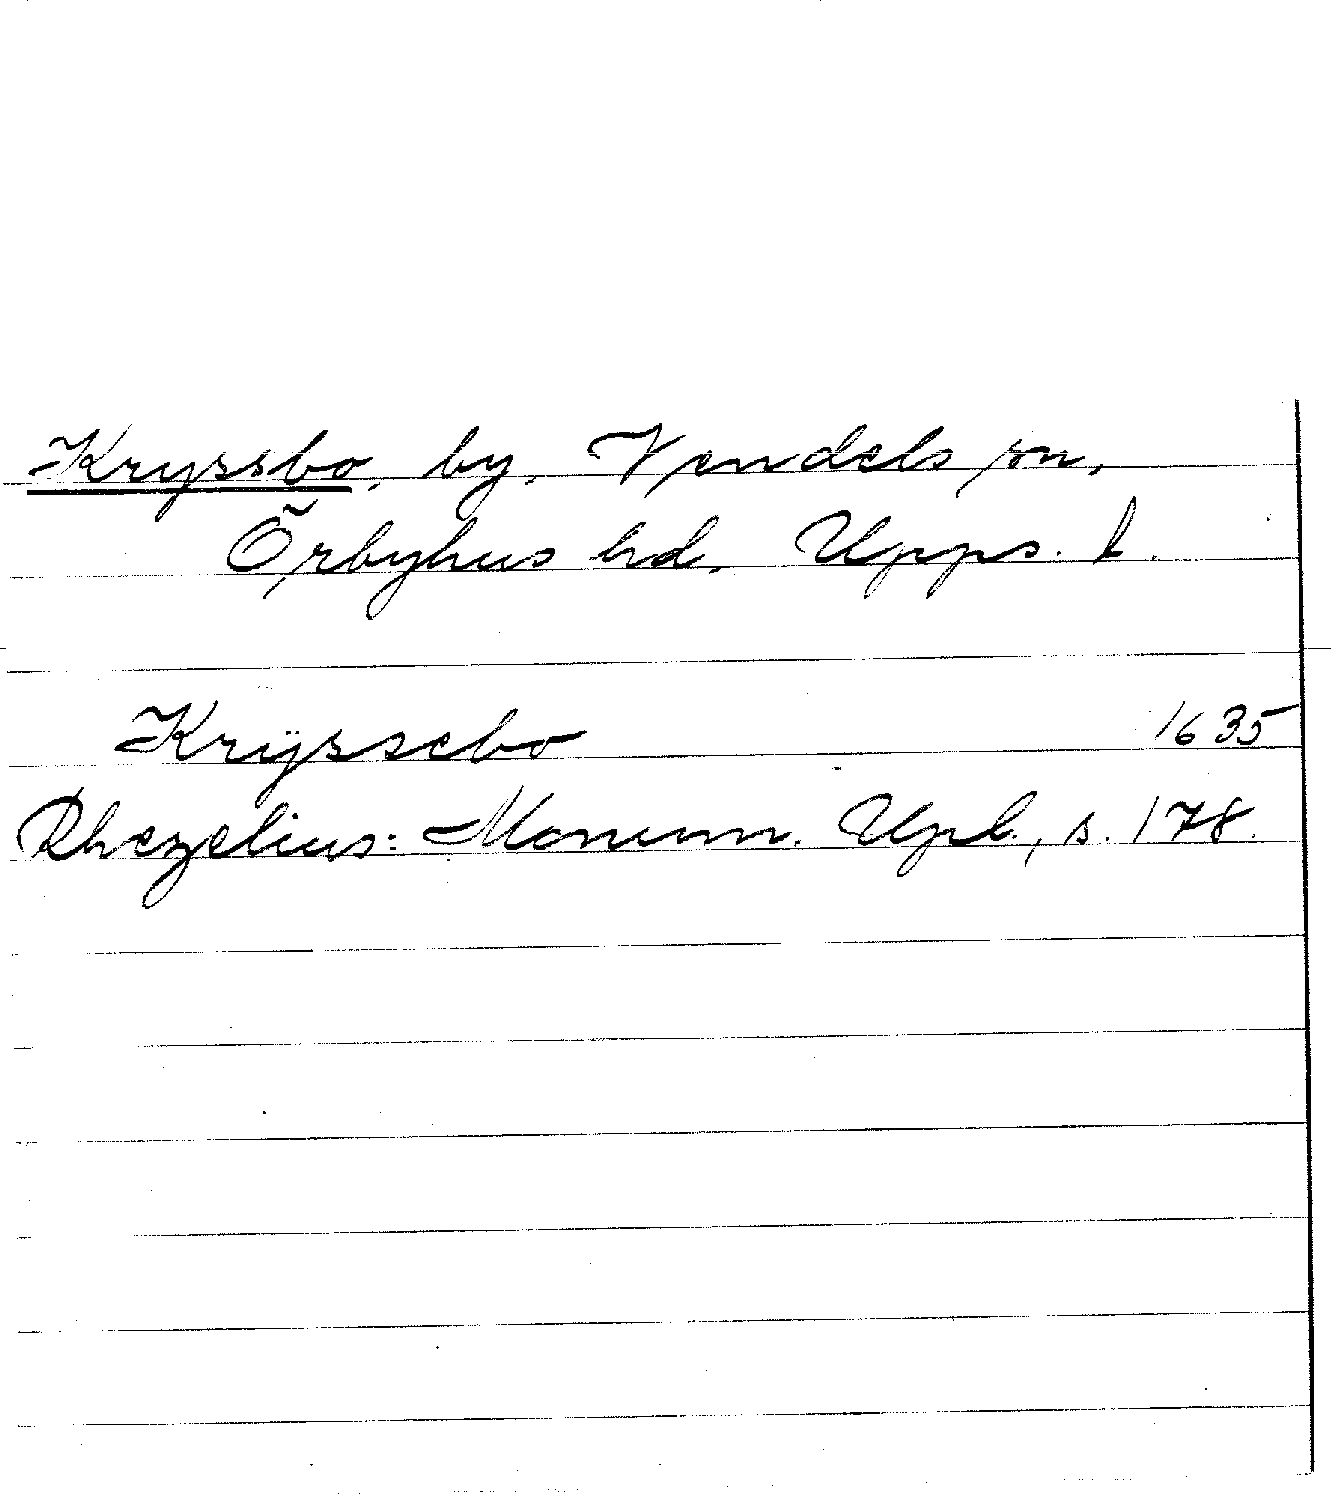 Kryssbo, by, Vendels sn,
Örbyhus hd, Upps. l.
Krÿssebo 1635
Rhezelius: Monum. Upl., s. 178.